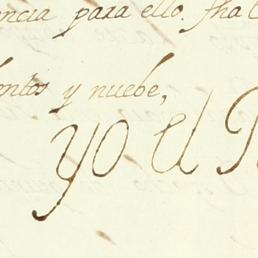 encia para ello. fha
entos y nuebe,
yo el R